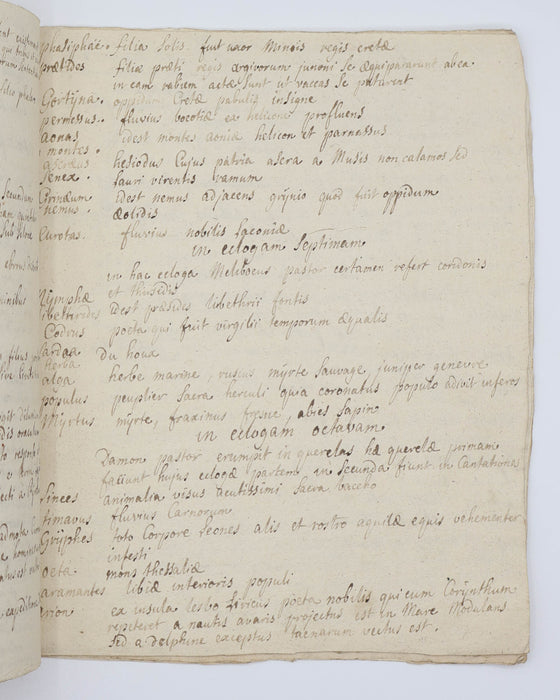 phasiphäe · filia solis. fuit uxor Minois regis cretæ
prætides filiæ præti regis argivorum junoni se æquipararunt ab ea
in eam rabiem actæ sunt ut vaccas se putarent
Gortyna · oppidum Cretæ pabulis insigne
permessus · fluvius bœotiæ ex helicone profluens
aonas idest montes aoniæ helicon et parnassus
montes ·
ascræus hesiodus cujus patria ascra a Musis non calamos sed
senex · lauri virentis ramum
Grinæum idest nemus adjacens grynio quod fuit oppidum
nemus · æolidis
Eurotas · fluvius nobilis laconiæ
in eclogam septimam
in hac ecloga Melibœus pastor certamen refert coridonis
et thirsidis
Nymphæ idest præsides libethrii fontis
libethrides
Codrus poeta qui fuit virgilii temporum æqualis
Du houx
herba
alga herbe marine, ruscus myrte sauvage, juniper genevre
populus peuplier sacra herculi quia coronatus populo adivit inferos
Myrtus myrte, fraxinus fresne, abies sapin
in eclogam octavam
Damon pastor erumpit in querelas hæ querelæ primam
faciunt hujus eclogæ partem in secunda fiunt incantationes
Linces animalia visus acutissimi sacra baccho
timavus fluvius Carnorum
Gryphes toto corpore leones alis et rostro aquilæ equis vehementer
infesti
oeta mons thessaliæ
garamantes libiæ interioris populi
arion ex insula lesbo liricus poeta nobilis qui cum Corynthum
repeteret a nautis avaris projectus est in Mare Modulans
sed a delphine exceptus tænarum vectus est.